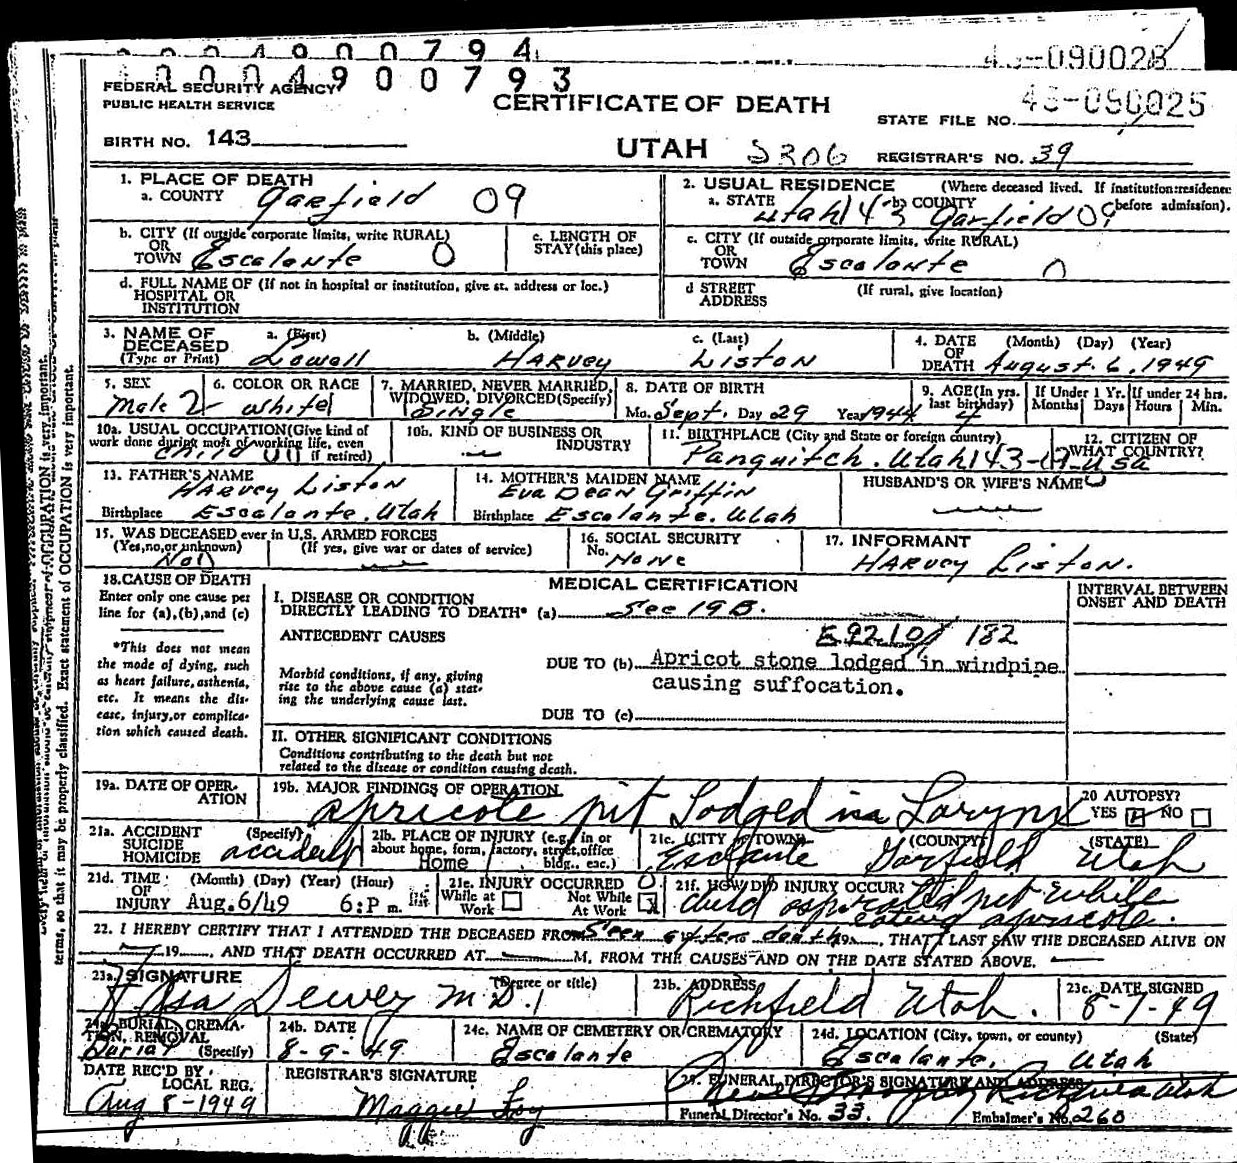 0004900794
0004900793
FEDERAL SECURITY AGENCY
PUBLIC HEALTH SERVICE
CERTIFICATE OF DEATH
STATE FILE NO.
BIRTH NO. 143
UTAH
REGISTRAR'S NO. 39
1. PLACE OF DEATH
a. COUNTY Garfield 09
2. USUAL RESIDENCE (Where deceased lived. If institution: residence before admission).
a. STATE Utah 143 b. COUNTY Garfield 09
b. CITY (If outside corporate limits, write RURAL)
OR
TOWN Escalante 0
c. LENGTH OF
STAY (this place)
c. CITY (If outside corporate limits, write RURAL)
OR
TOWN Escalante 0
d. FULL NAME OF (If not in hospital or institution, give st. address or loc.)
HOSPITAL OR
INSTITUTION
d STREET (If rural, give location)
ADDRESS
3. NAME OF
DECEASED
(Type or Print)
a. (First) Lowell
b. (Middle) Harvey
c. (Last) Liston
4. DATE (Month) (Day) (Year)
OF
DEATH August. 6, 1949
5. SEX
Male 2
6. COLOR OR RACE
White
7. MARRIED, NEVER MARRIED,
WIDOWED, DIVORCED (Specify)
Single
8. DATE OF BIRTH
Mo. Sept. Day 29 Year 1944
9. AGE (In yrs.
last birthday)
4
If Under 1 Yr.
Months Days
If under 24 hrs.
Hours Min.
10a. USUAL OCCUPATION (Give kind of
work done during most of working life, even
if retired)
Child
10b. KIND OF BUSINESS OR
INDUSTRY
11. BIRTHPLACE (City and State or foreign country)
Panguitch. Utah 143-
12. CITIZEN OF
WHAT COUNTRY?
USA
13. FATHER'S NAME
Harvey Liston
Birthplace Escalante. Utah
14. MOTHER'S MAIDEN NAME
Eva Dean Griffin
Birthplace Escalante. Utah
HUSBAND'S OR WIFE'S NAME
15. WAS DECEASED ever in U.S. ARMED FORCES
(Yes, no, or unknown) (If yes, give war or dates of service)
No
16. SOCIAL SECURITY
No.
None
17. INFORMANT
Harvey Liston.
18. CAUSE OF DEATH
Enter only one cause per
line for (a), (b), and (c)
*This does not mean
the mode of dying, such
as heart failure, asthenia,
etc. It means the dis-
ease, injury, or complica-
tion which caused death.
MEDICAL CERTIFICATION
INTERVAL BETWEEN
ONSET AND DEATH
I. DISEASE OR CONDITION
DIRECTLY LEADING TO DEATH* (a) See 19B.
ANTECEDENT CAUSES
E921.0 182
Morbid conditions, if any, giving
rise to the above cause (a) stat-
ing the underlying cause last.
DUE TO (b) Apricot stone lodged in windpipe
causing suffocation.
DUE TO (c)
II. OTHER SIGNIFICANT CONDITIONS
Conditions contributing to the death but not
related to the disease or condition causing death.
19a. DATE OF OPER-
ATION
19b. MAJOR FINDINGS OF OPERATION
apricote pit Lodged in Larynx
20 AUTOPSY?
YES NO
21a. ACCIDENT (Specify)
SUICIDE
HOMICIDE
accident
21b. PLACE OF INJURY (e.g., in or
about home, form, factory, street, office
bldg., etc.)
Home
21c. (CITY OR TOWN) (COUNTY) (STATE)
Escalante Garfield Utah
21d. TIME (Month) (Day) (Year) (Hour)
OF
INJURY Aug. 6/49 6:P m.
21e. INJURY OCCURRED
While at Work
Not While At Work X
21f. HOW DID INJURY OCCUR?
Child asperated pit while
eating apricote.
22. I HEREBY CERTIFY THAT I ATTENDED THE DECEASED FROM Seen after death 19, THAT I LAST SAW THE DECEASED ALIVE ON
19, AND THAT DEATH OCCURRED AT M. FROM THE CAUSES AND ON THE DATE STATED ABOVE.
23a. SIGNATURE (Degree or title)
Asa Dewey M.D.
23b. ADDRESS
Richfield Utah.
23c. DATE SIGNED
8-7-49
24a. BURIAL, CREMA-
TION, REMOVAL
(Specify)
Burial
24b. DATE
8-9-49
24c. NAME OF CEMETERY OR CREMATORY
Escalante
24d. LOCATION (City, town, or county) (State)
Escalante. Utah
DATE REC'D BY
LOCAL REG.
Aug 8-1949
REGISTRAR'S SIGNATURE
Maggie Foy
25. FUNERAL DIRECTOR'S SIGNATURE AND ADDRESS
Funeral Director's No. 33. Embalmer's No. 260
terms, so that it may be properly classified. Exact statement of OCCUPATION is very important.